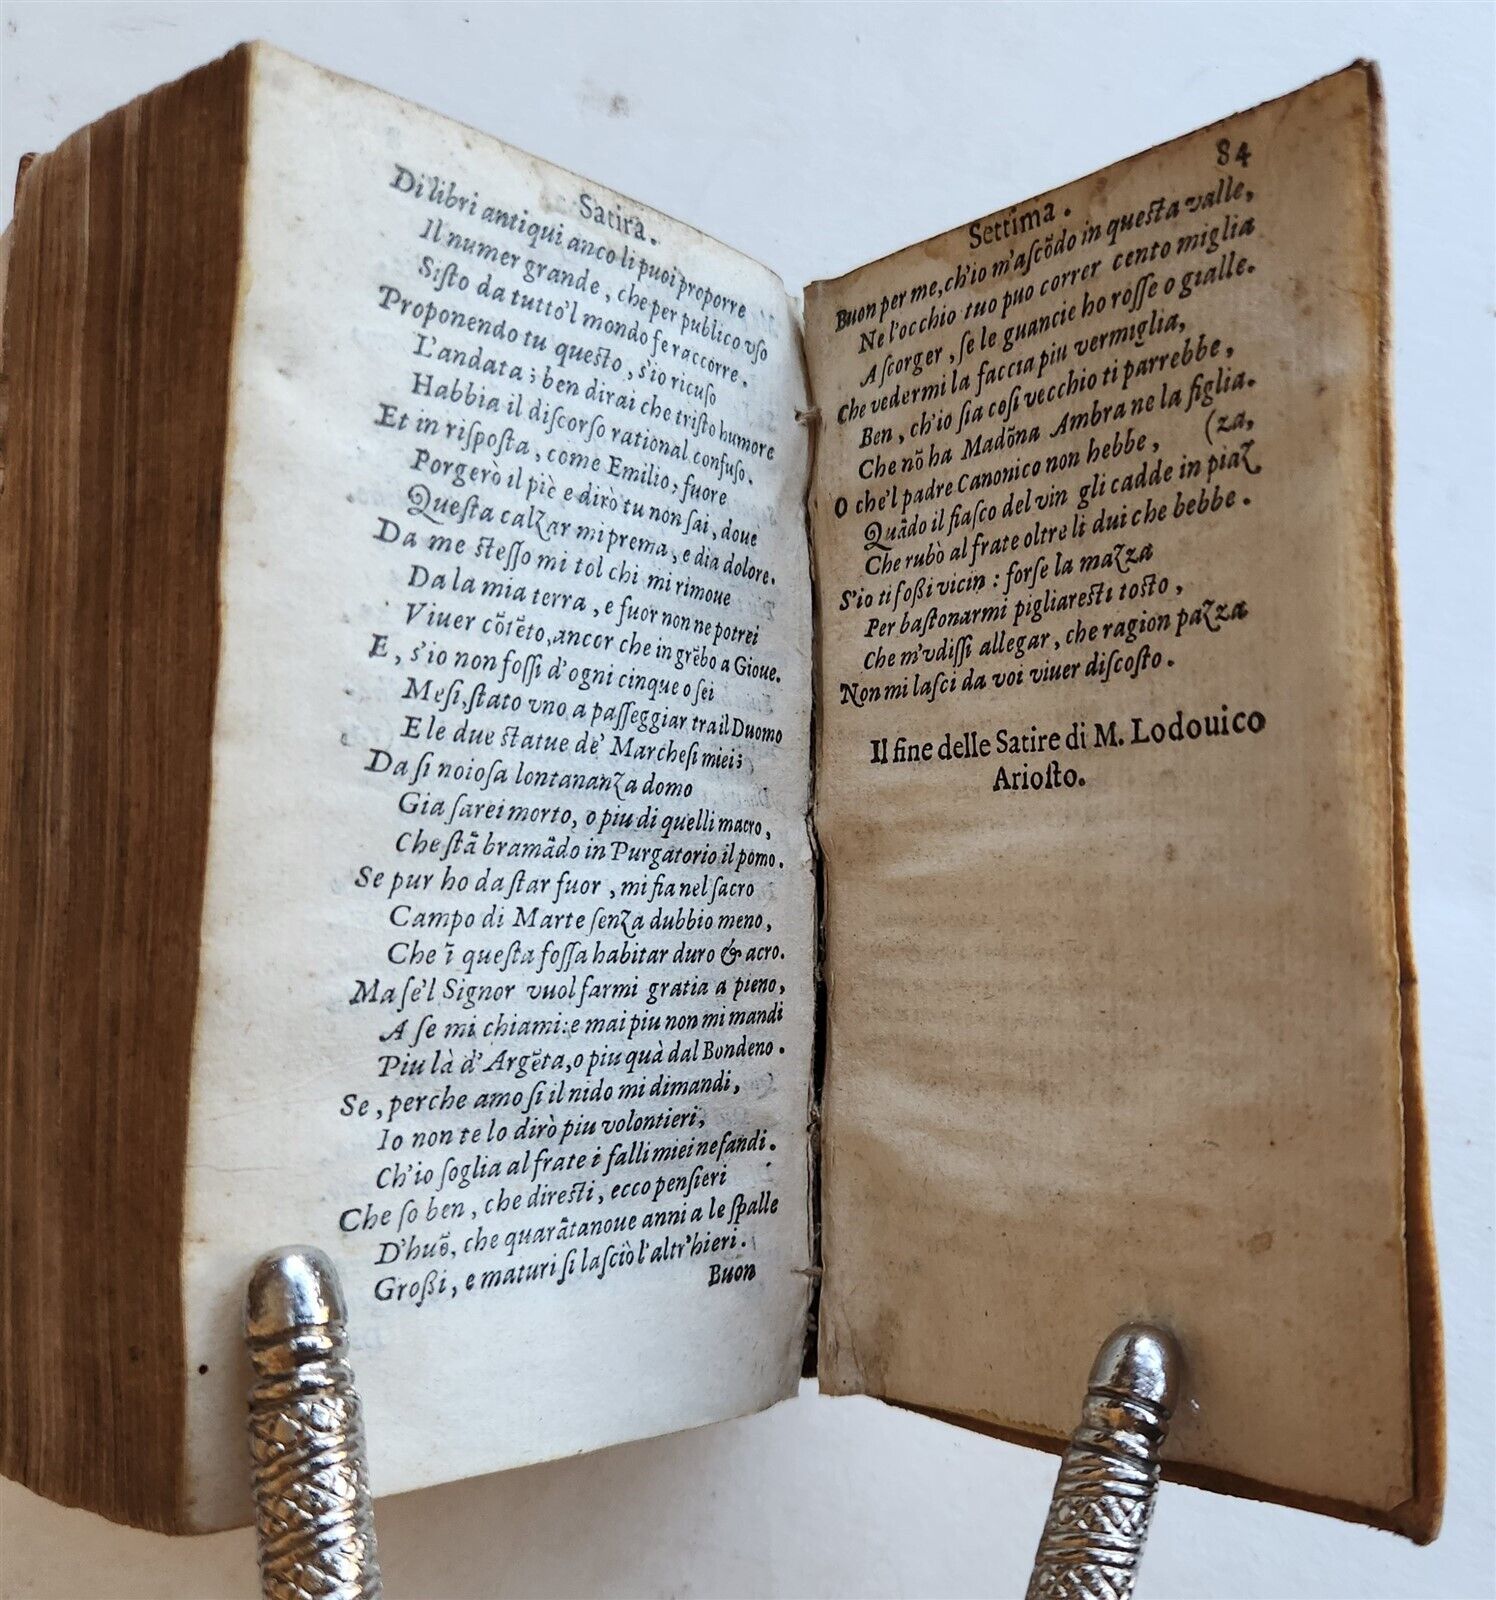 Satira.
Di libri antiqui anco li puoi proporre
Il numer grande, che per publico vso
Siſto da tutto'l mondo fe raccorre.
Proponendo tu queſto, s'io ricuſo
L'andata; ben dirai che triſto humore
Habbia il diſcorſo rational confuſo.
Et in riſpoſta, come Emilio; fuore
Porgerò il piè e dirò tu non ſai, doue
Queſta calzar mi prema, e dia dolore.
Da me ſteſſo mi tol chi mi rimoue
Da la mia terra, e fuor non ne potrei
Viuer cōtēto, ancor che in grēbo a Gioue.
E, s'io non foſſi d'ogni cinque o ſei
Meſi, ſtato vno a paſſeggiar tra il Duomo
E le due ſtatue de' Marcheſi miei;
Da ſi noioſa lontananza domo
Gia ſarei morto, o piu di quelli macro,
Che ſtā bramādo in Purgatorio il pomo.
Se pur ho da ſtar fuor, mi fia nel ſacro
Campo di Marte ſenza dubbio meno,
Che ī queſta foſſa habitar duro & acro.
Ma ſe'l Signor vuol farmi gratia a pieno,
A ſe mi chiami: e mai piu non mi mandi
Piu là d'Argēta, o piu quà dal Bondeno.
Se, perche amo ſi il nido mi dimandi,
Io non te lo dirò piu volontieri,
Ch'io ſoglia al frate i falli miei nefandi.
Che ſo ben, che direſti, ecco penſieri
D'huō, che quarātanoue anni a le ſpalle
Groſſi, e maturi ſi laſciò l'altr'hieri.
Buon
84
Settima.
Buon per me, ch'io m'aſcōdo in queſta valle,
Ne l'occhio tuo puo correr cento miglia
A ſcorger, ſe le guancie ho roſſe o gialle.
Che vedermi la faccia piu vermiglia,
Ben, ch'io ſia coſi vecchio ti parrebbe,
Che nō ha Madōna Ambra ne la figlia.
O che'l padre Canonico non hebbe, (za,
Quādo il fiaſco del vin gli cadde in piaz
Che rubò al frate oltre li dui che bebbe.
S'io ti foſſi vicin: forſe la mazza
Per baſtonarmi pigliareſti toſto,
Che m'vdiſſi allegar, che ragion pazza
Non mi laſci da voi viuer diſcoſto.
Il fine delle Satire di M. Lodouico
Arioſto.